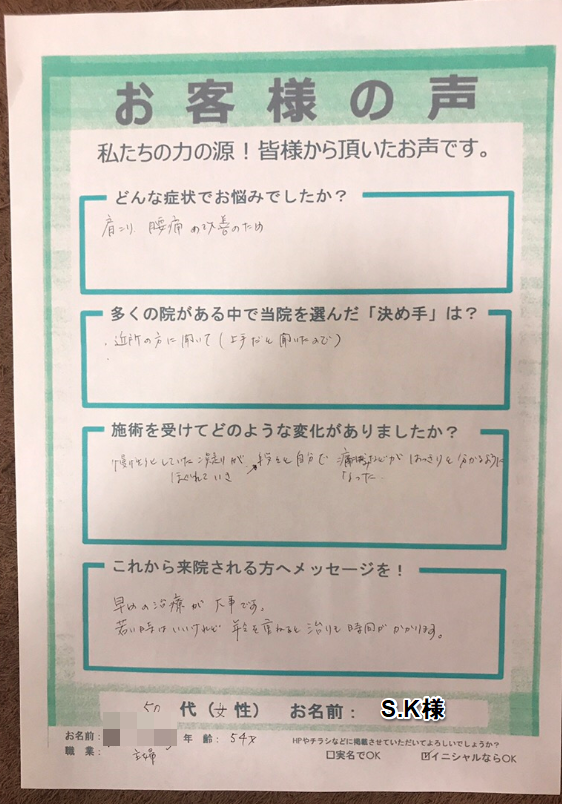 お客様の声
私たちの力の源！皆様から頂いたお声です。
どんな症状でお悩みでしたか？
肩こり 腰痛の改善のため
多くの院がある中で当院を選んだ「決め手」は？
・近所の方に聞いて(上手だと聞いたので)
・
施術を受けてどのような変化がありましたか？
していた 凝りが 自分で 痛みなどが はっきりと分かるように
ほぐれていき なった
これから来院される方へメッセージを！
早めの治療が大事です。
若い時はいいけれど 年令を重ねると 治りも時間がかかります。
50代（女性） お名前： S.K様
お名前： 年齢：54才 HPやチラシなどに掲載させていただいてよろしいでしょうか？
職業： 主婦 □実名でOK ☑イニシャルならOK